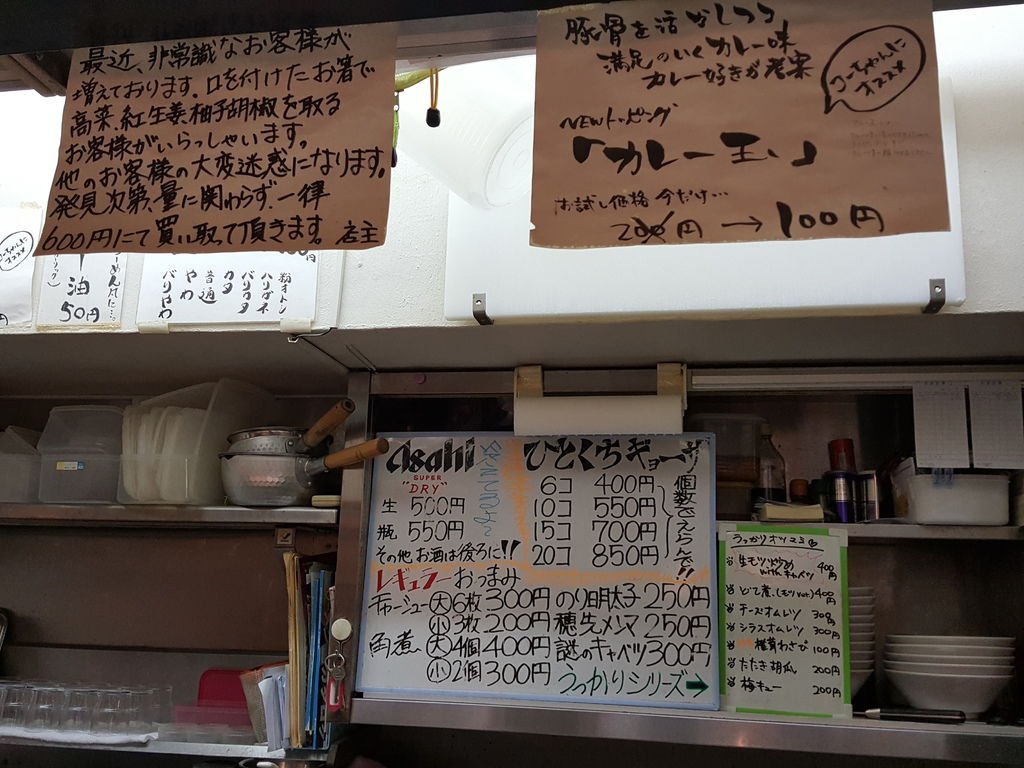 最近、非常識なお客様が
増えております。口を付けたお箸で
高菜、紅生姜、柚子胡椒を取る
お客様がいらっしゃいます。
他のお客様の大変迷惑になります。
発見次第、量に関わらず、一律
600円にて買い取って頂きます。 店主
豚骨を活かしつつ
満足のいくカレー味
カレー好きが考案
コーちゃんに
オススメ
NEWトッピング
「カレー玉」
お試し価格 今だけ…
200円→100円
油
50円
粉オトシ
ハリガネ
バリカタ
カタ
普通
やわ
バリやわ
Asahi
SUPER
"DRY"
生 500円
瓶 550円
その他 お酒は後ろに!!
ひとくちギョーザ
6コ 400円
10コ 550円
15コ 700円
20コ 850円
個数でえらんで!!
レギュラーおつまみ
チャーシュー(大)6枚300円
(小)3枚200円
角煮(大)4個400円
(小)2個300円
のり明太子250円
穂先メンマ250円
謎のキャベツ300円
うっかりシリーズ→
生モツ炒め
withキャベツ 400円
どて煮(モツver.)400円
チーズオムレツ 300円
シラスオムレツ 300円
椎茸わさび 100円
たたき胡瓜 200円
梅キュー 200円